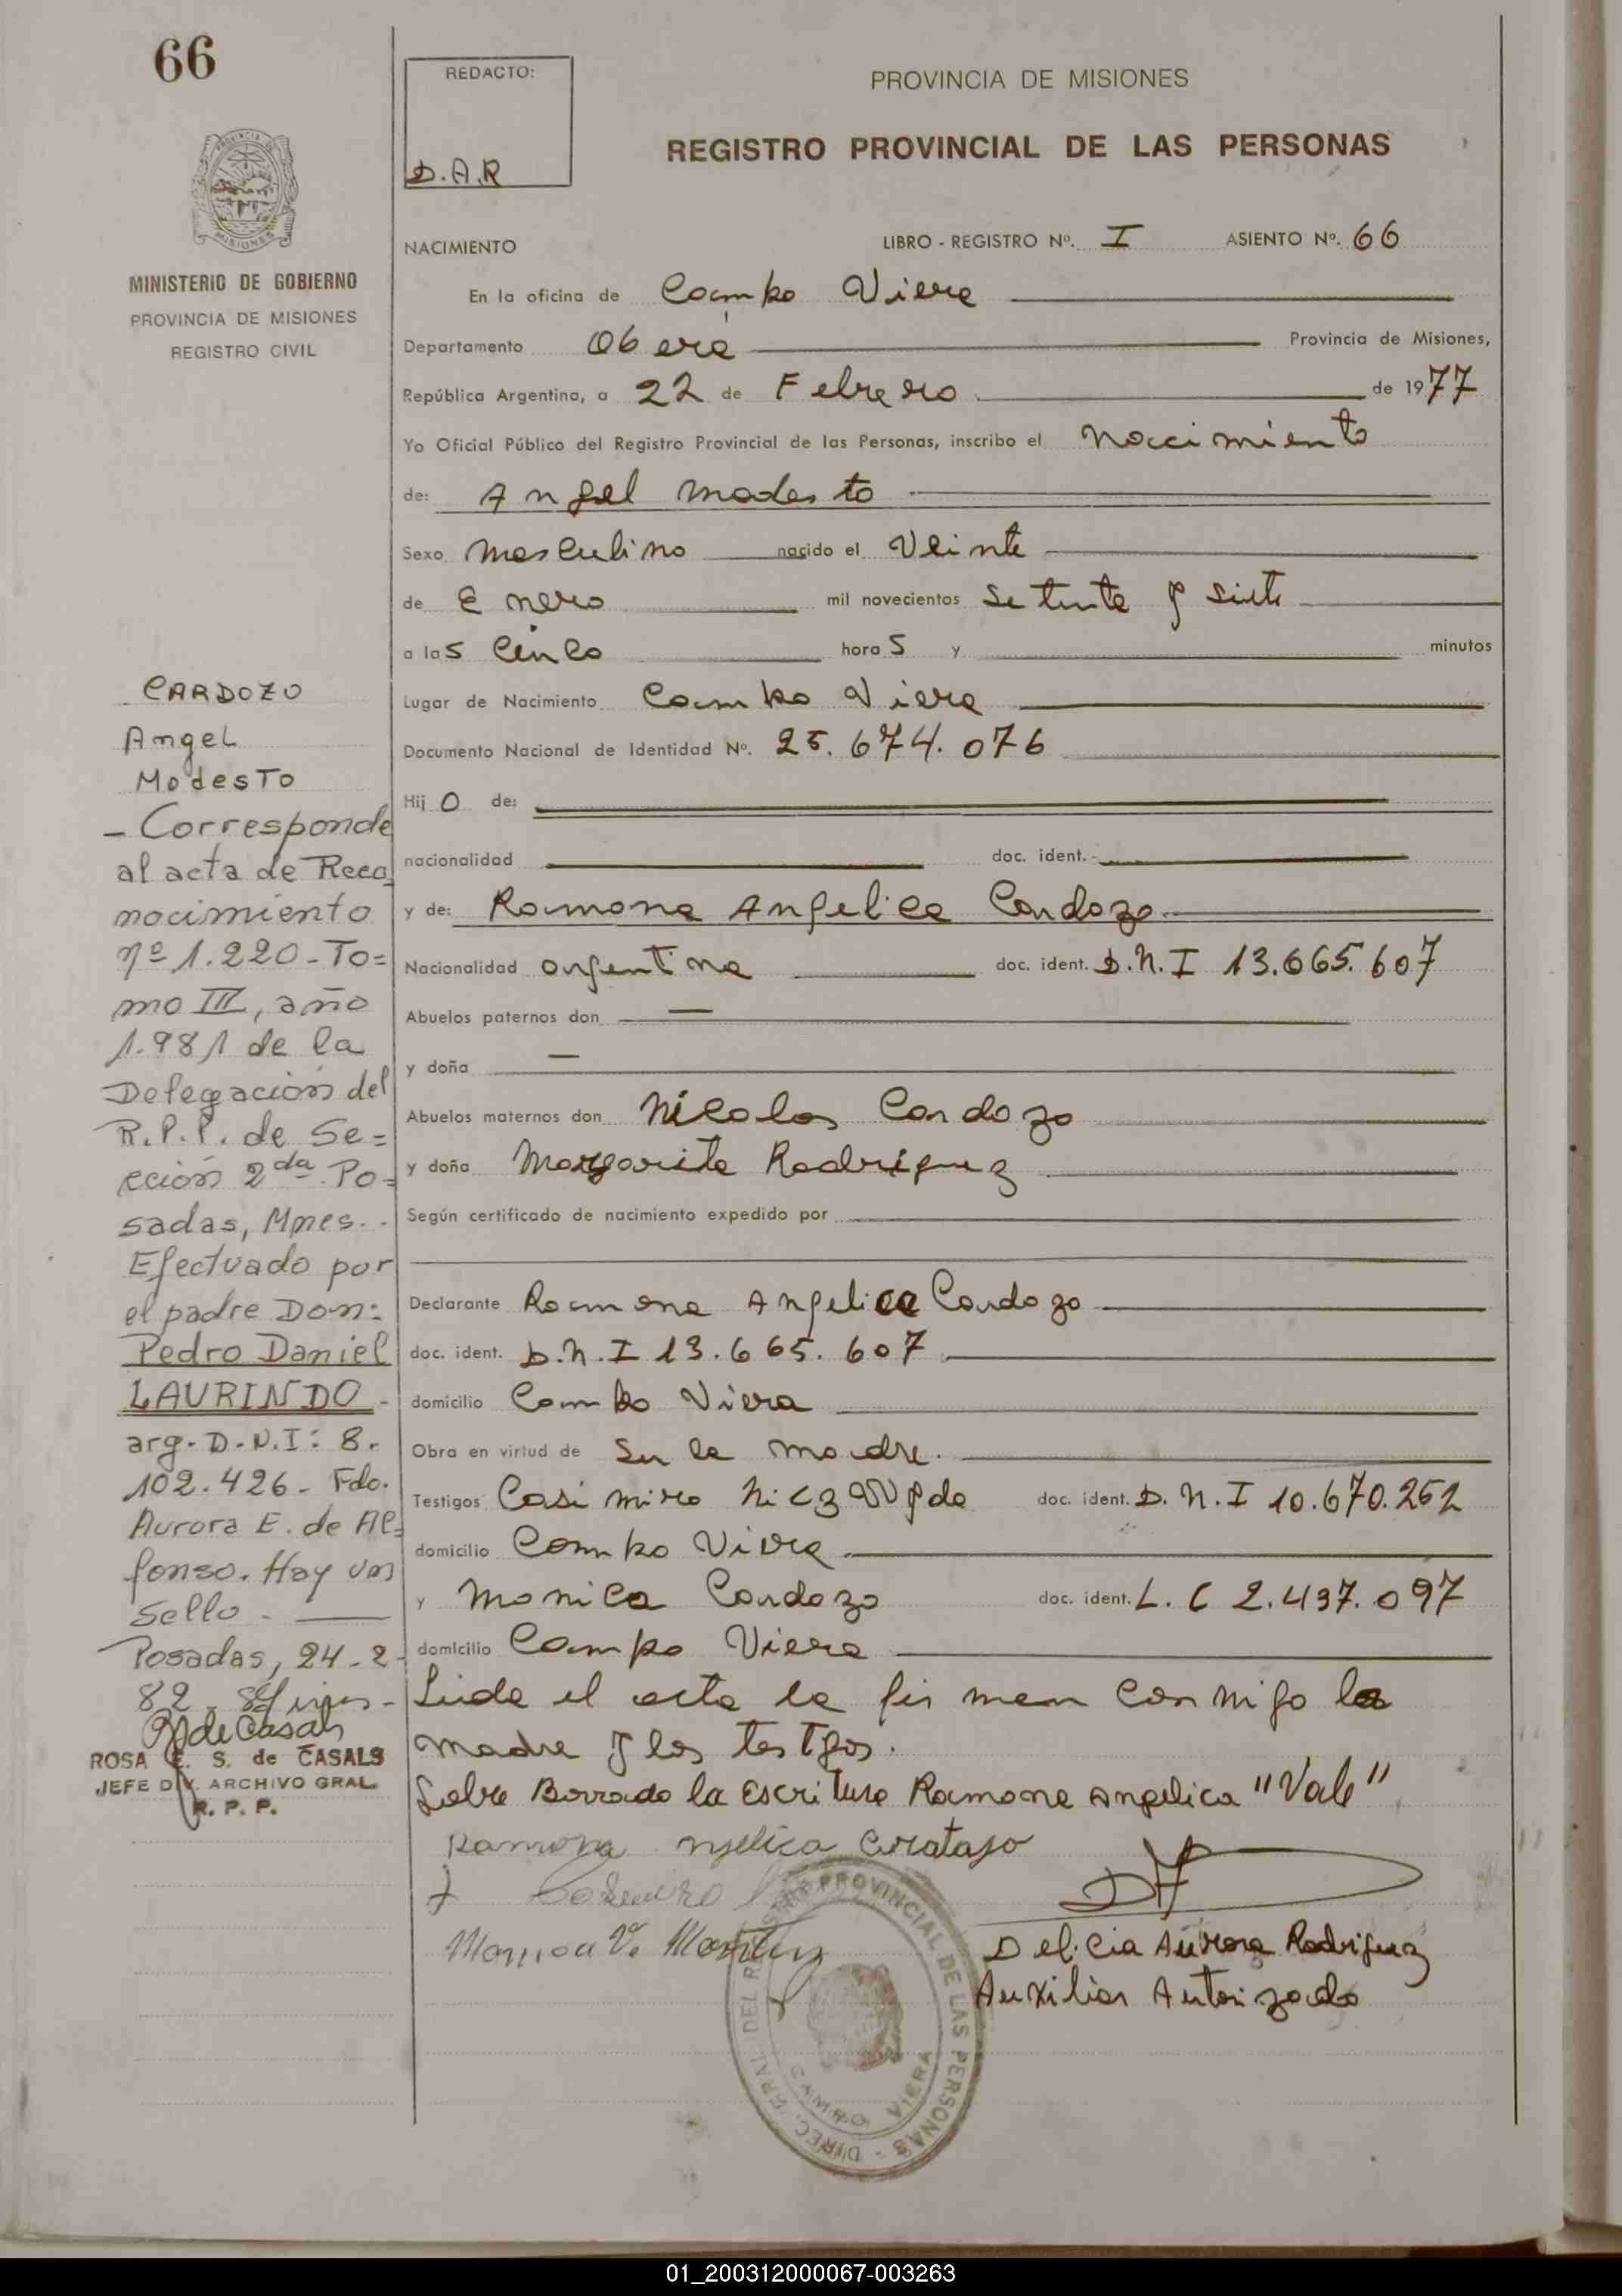 66
REDACTO:
D.A.R
PROVINCIA DE MISIONES
REGISTRO PROVINCIAL DE LAS PERSONAS
PROVINCIA
MISIONES
MINISTERIO DE GOBIERNO
PROVINCIA DE MISIONES
REGISTRO CIVIL
NACIMIENTO LIBRO - REGISTRO Nº. I ASIENTO Nº. 66
En la oficina de Campo Viera
Departamento Oberá Provincia de Misiones,
República Argentina, a 22 de Febrero de 1977
Yo Oficial Público del Registro Provincial de las Personas, inscribo el Nacimiento
de: Angel Modesto
Sexo Masculino nacido el Veinte
de Enero mil novecientos Setenta y Siete
a las Cinco horas y minutos
Lugar de Nacimiento Campo Viera
Documento Nacional de Identidad Nº. 25.674.076
Hijo de:
nacionalidad doc. ident.
y de: Ramona Angelica Cardozo
Nacionalidad argentina doc. ident. D.N.I 13.665.607
Abuelos paternos don —
y doña —
Abuelos maternos don Nicolas Cardozo
y doña Margarita Rodriguez
Según certificado de nacimiento expedido por
Declarante Ramona Angelica Cardozo
doc. ident. D.N.I 13.665.607
domicilio Campo Viera
Obra en virtud de Ser la madre.
Testigos Casimiro doc. ident. D.N.I 10.670.252
domicilio Campo Viera
y Monica Cardozo doc. ident. L.C 2.437.097
domicilio Campo Viera
Leida el acta la firman conmigo la
madre y los testgos.
Sobre Borrado la Escritura Ramona Angelica "Vale"
Ramona
Casimiro
Monica V.
Delicia Aurora Rodriguez
Auxiliar Autorizado
DIREC. GRAL. DEL REGISTRO PROVINCIAL DE LAS PERSONAS -
CAMPO VIERA
CARDOZO
Angel
Modesto
- Corresponde
al acta de Reco
nocimiento
nº 1.220 - To=
mo III, año
1.981 de la
Delegación del
R.P.P. de Se=
cción 2da. Po=
sadas, Mnes. -
Efectuado por
el padre Don:
Pedro Daniel
LAURINDO -
arg. D.N.I: 8.
102.426 - Fdo.
Aurora E. de Al=
fonso. Hay un
sello. -
Posadas, 24-2-
82.
de Casals
ROSA E. S. de CASALS
JEFE DIV. ARCHIVO GRAL.
R. P. P.
01_200312000067-003263